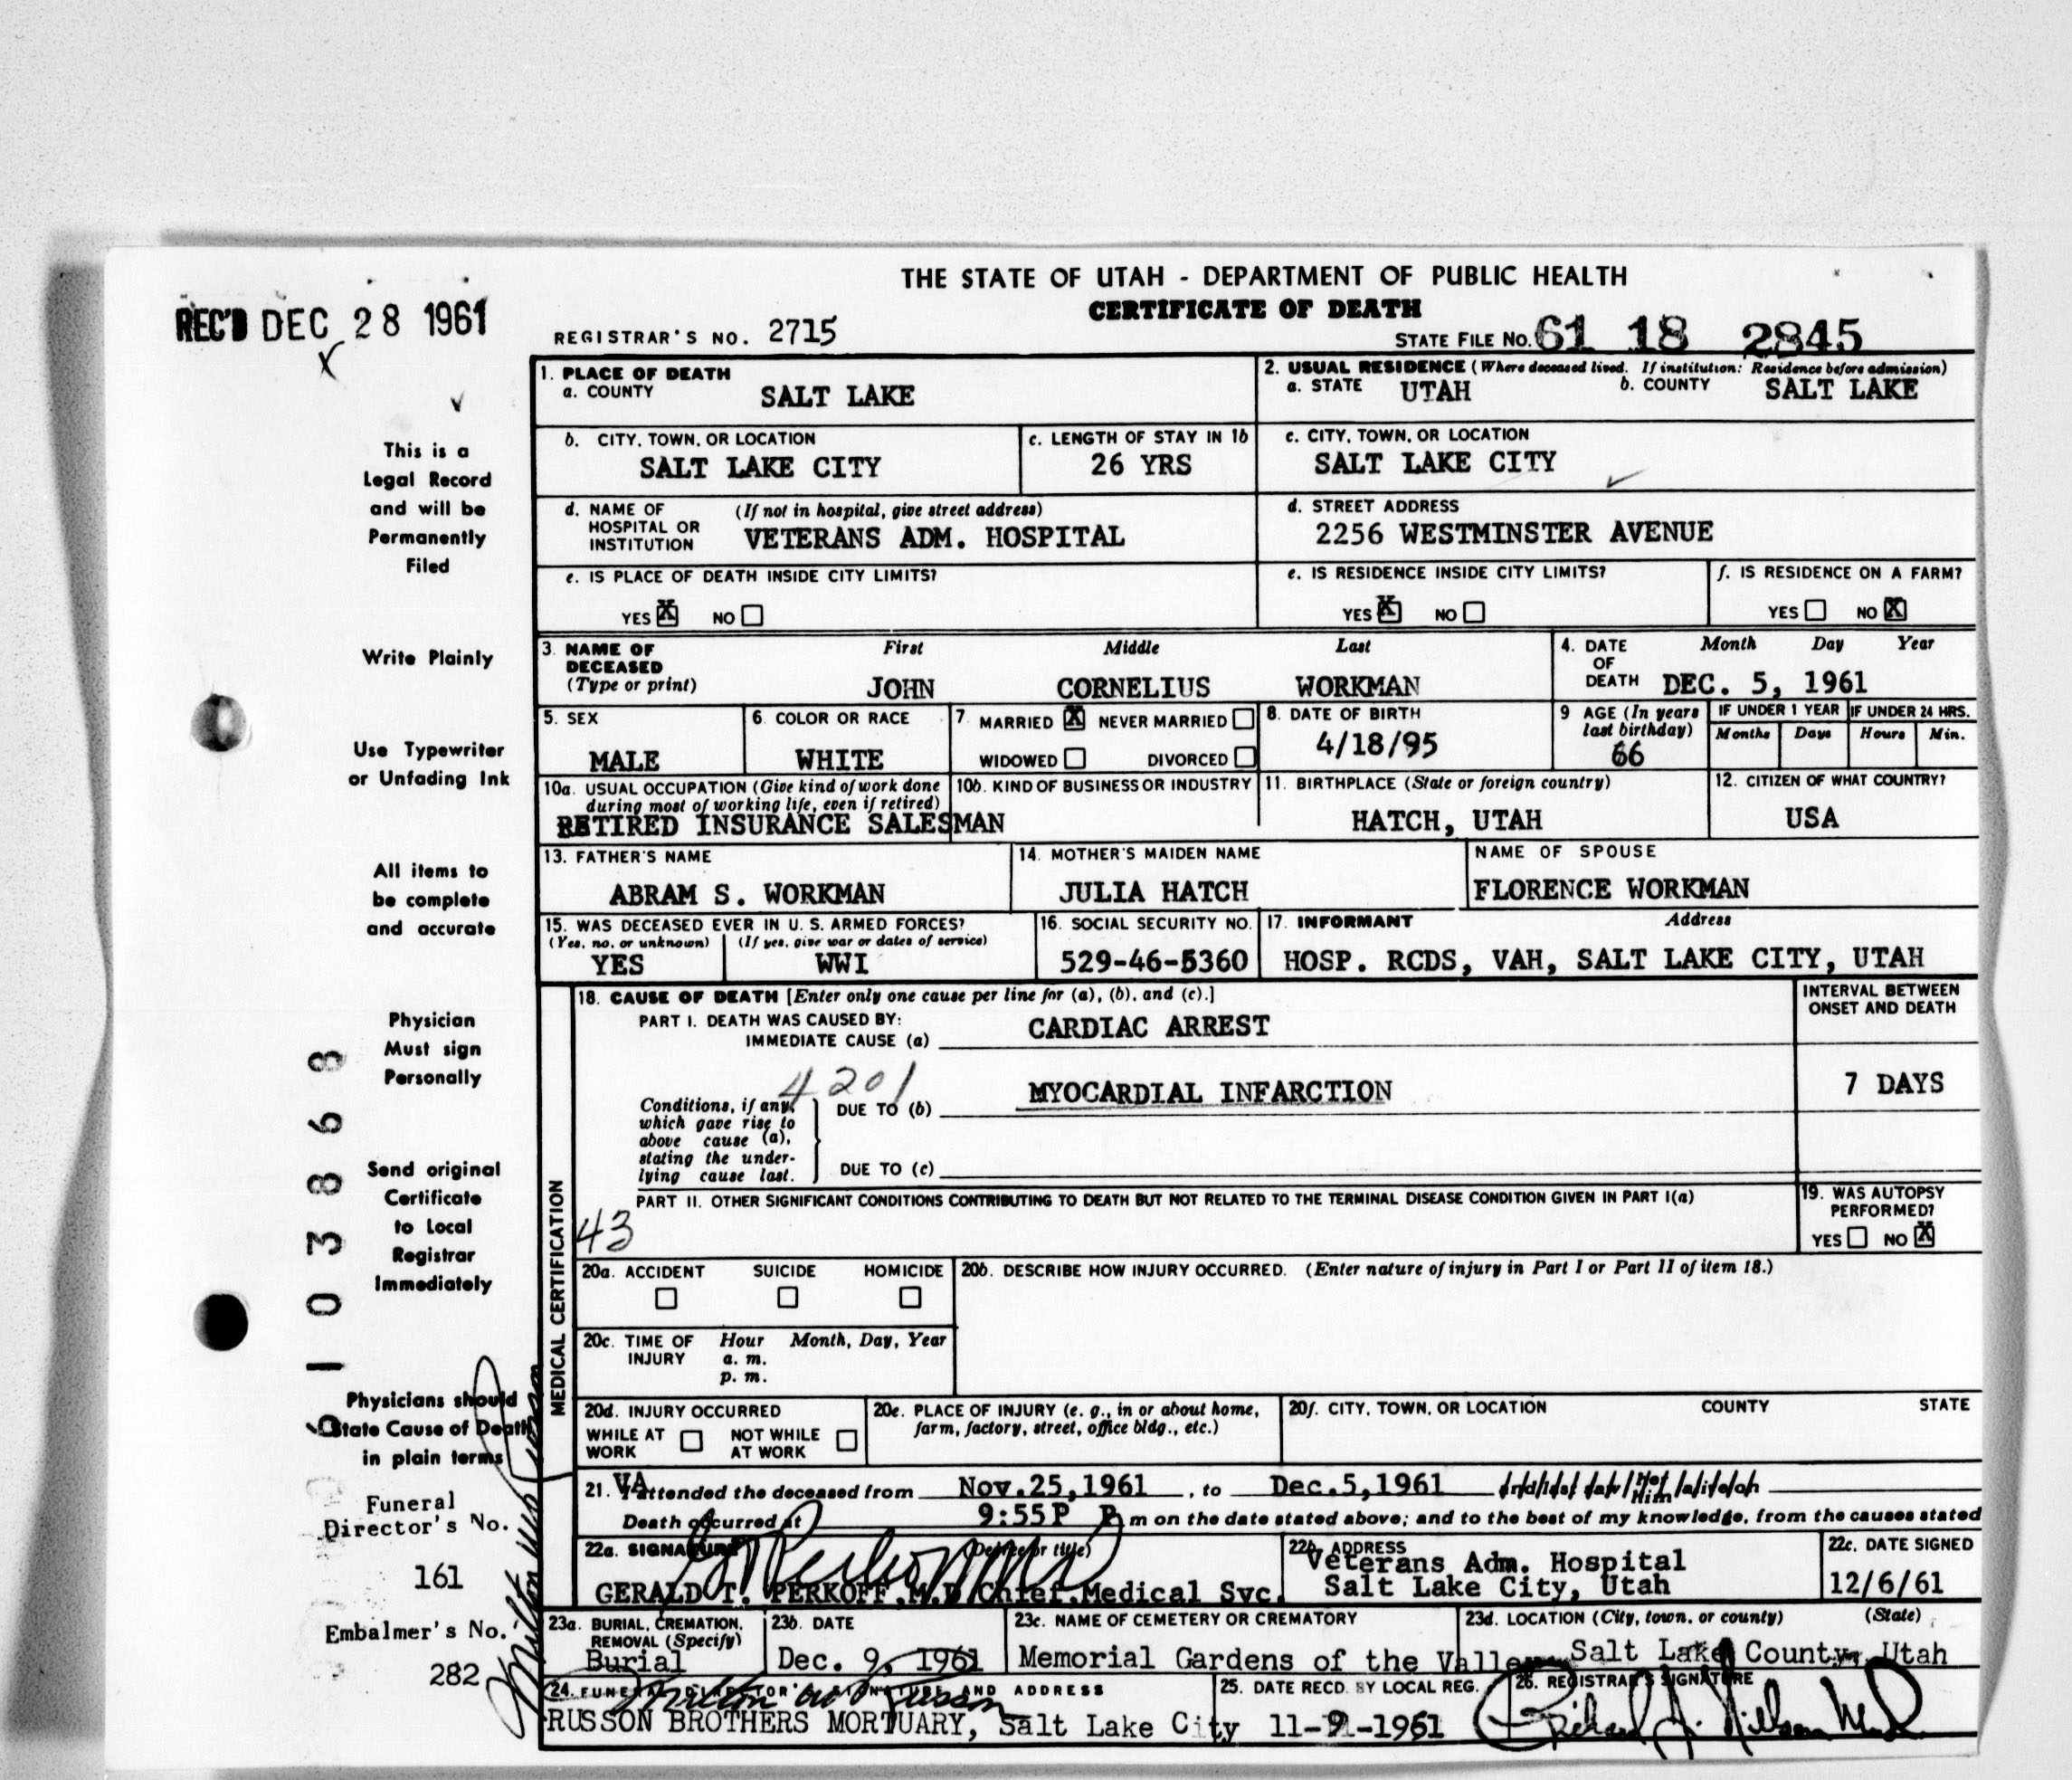 THE STATE OF UTAH - DEPARTMENT OF PUBLIC HEALTH
CERTIFICATE OF DEATH
REC'D DEC 28 1961
REGISTRAR'S NO. 2715
STATE FILE NO. 61 18 2845
This is a
Legal Record
and will be
Permanently
Filed
Write Plainly
Use Typewriter
or Unfading Ink
All items to
be complete
and accurate
Physician
Must sign
Personally
Send original
Certificate
to Local
Registrar
Immediately
Physicians should
State Cause of Death
in plain terms
Funeral
Director's No.
161
Embalmer's No.
282
1. PLACE OF DEATH
a. COUNTY SALT LAKE
2. USUAL RESIDENCE (Where deceased lived. If institution: Residence before admission)
a. STATE UTAH b. COUNTY SALT LAKE
b. CITY, TOWN, OR LOCATION
SALT LAKE CITY
c. LENGTH OF STAY IN 1b
26 YRS
c. CITY, TOWN, OR LOCATION
SALT LAKE CITY
d. NAME OF (If not in hospital, give street address)
HOSPITAL OR
INSTITUTION VETERANS ADM. HOSPITAL
d. STREET ADDRESS
2256 WESTMINSTER AVENUE
e. IS PLACE OF DEATH INSIDE CITY LIMITS?
YES X NO
e. IS RESIDENCE INSIDE CITY LIMITS?
YES X NO
f. IS RESIDENCE ON A FARM?
YES NO X
3. NAME OF First Middle Last
DECEASED
(Type or print) JOHN CORNELIUS WORKMAN
4. DATE Month Day Year
OF
DEATH DEC. 5, 1961
5. SEX
MALE
6. COLOR OR RACE
WHITE
7. MARRIED X NEVER MARRIED
WIDOWED DIVORCED
8. DATE OF BIRTH
4/18/95
9 AGE (In years
last birthday)
66
IF UNDER 1 YEAR IF UNDER 24 HRS.
Months Days Hours Min.
10a. USUAL OCCUPATION (Give kind of work done
during most of working life, even if retired)
RETIRED INSURANCE SALESMAN
10b. KIND OF BUSINESS OR INDUSTRY
11. BIRTHPLACE (State or foreign country)
HATCH, UTAH
12. CITIZEN OF WHAT COUNTRY?
USA
13. FATHER'S NAME
ABRAM S. WORKMAN
14. MOTHER'S MAIDEN NAME
JULIA HATCH
NAME OF SPOUSE
FLORENCE WORKMAN
15. WAS DECEASED EVER IN U. S. ARMED FORCES?
(Yes, no, or unknown) (If yes, give war or dates of service)
YES WWI
16. SOCIAL SECURITY NO.
529-46-5360
17. INFORMANT Address
HOSP. RCDS, VAH, SALT LAKE CITY, UTAH
MEDICAL CERTIFICATION
18. CAUSE OF DEATH [Enter only one cause per line for (a), (b), and (c).]
PART I. DEATH WAS CAUSED BY:
IMMEDIATE CAUSE (a) CARDIAC ARREST
INTERVAL BETWEEN
ONSET AND DEATH
4201
Conditions, if any,
which gave rise to
above cause (a),
stating the under-
lying cause last.
DUE TO (b) MYOCARDIAL INFARCTION
7 DAYS
DUE TO (c)
PART II. OTHER SIGNIFICANT CONDITIONS CONTRIBUTING TO DEATH BUT NOT RELATED TO THE TERMINAL DISEASE CONDITION GIVEN IN PART I(a)
43
19. WAS AUTOPSY
PERFORMED?
YES NO X
20a. ACCIDENT SUICIDE HOMICIDE
20b. DESCRIBE HOW INJURY OCCURRED. (Enter nature of injury in Part I or Part II of item 18.)
20c. TIME OF Hour Month, Day, Year
INJURY a. m.
p. m.
20d. INJURY OCCURRED
WHILE AT WORK NOT WHILE AT WORK
20e. PLACE OF INJURY (e. g., in or about home,
farm, factory, street, office bldg., etc.)
20f. CITY, TOWN, OR LOCATION COUNTY STATE
21. VA attended the deceased from Nov.25,1961, to Dec.5,1961 and last saw her him alive on
Death occurred at 9:55P P m on the date stated above; and to the best of my knowledge, from the causes stated
22a. SIGNATURE (Degree or title)
GERALD T. PERKOFF,M.D,Chief,Medical Svc.
22b. ADDRESS
Veterans Adm. Hospital
Salt Lake City, Utah
22c. DATE SIGNED
12/6/61
23a. BURIAL, CREMATION,
REMOVAL (Specify)
Burial
23b. DATE
Dec. 9, 1961
23c. NAME OF CEMETERY OR CREMATORY
Memorial Gardens of the Valley
23d. LOCATION (City, town, or county) (State)
Salt Lake County, Utah
24. FUNERAL DIRECTOR'S SIGNATURE AND ADDRESS
Milton W Russon
RUSSON BROTHERS MORTUARY, Salt Lake City
25. DATE RECD. BY LOCAL REG.
11-9-1961
26. REGISTRAR'S SIGNATURE